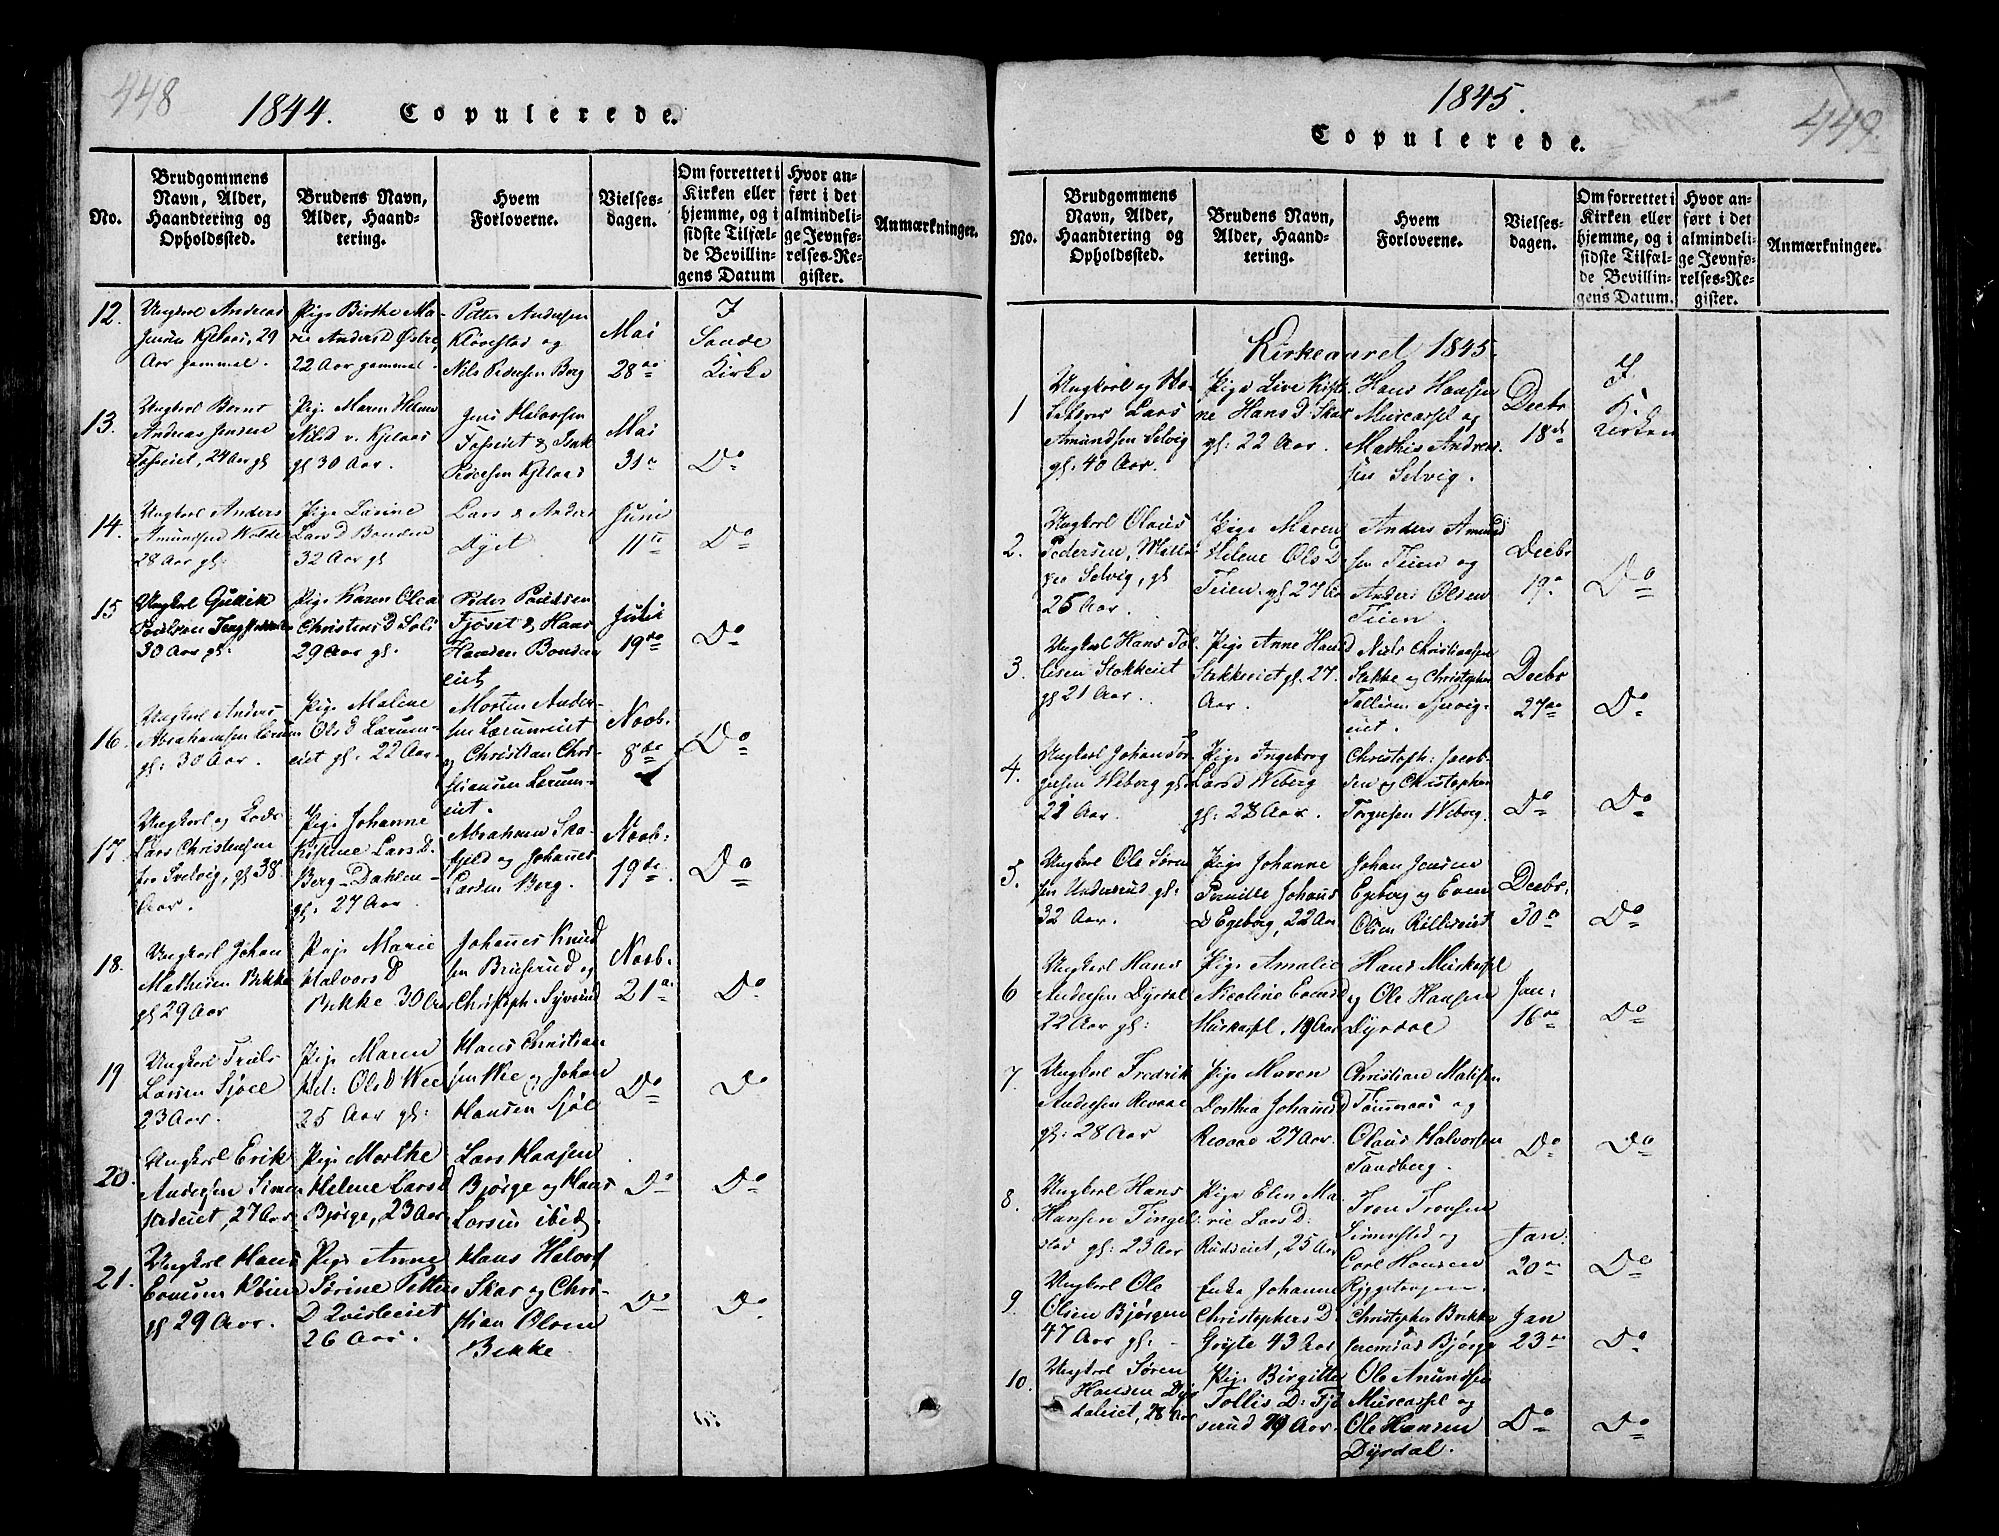 448
1844.
Copulerede.
No.
Brudgommens
Navn, Alder,
Haandtering og
Opholdssted.
Brudens Navn,
Alder, Haand-
tering.
Hvem
Forloverne.
Vielses-
dagen.
Om forrettet i
Kirken eller
hjemme, og i
sidste Tilfæl-
de Bevillin-
gens Datum
Hvor an-
ført i det
almindeli-
ge Jevnfø-
relses-Re-
gister.
Anmærkninger.
12.
Ungkarl Andreas
Jensen Kjelaas, 29
Aar gammel.
Pige Birthe Ma-
rie Anders D Østre,
22 Aar gammel
Petter Andersen
Kløvestad og
Nils Pedersen Berg
Mai
28de
I
Sande
Kirke
13.
Ungkarl Bernt
Andreas Jensen
Fosseiet, 24 Aar gl
Pige Maren Helene
Nils D v. Kjelaas
gl 30 Aar.
Jens Halvorsen
Fosseiet & Isak
Pedersen Kjelaas
Mai
31te
Do
14.
Ungkarl Anders
Amundsen Wolde
28 Aar gl:
Pige Larine
Lars D Bonden
32 Aar gl
Lars & Anders
Dyet.
Juni
11te
Do
15
Ungkarl Gulik
Poulsen
30 Aar gl.
Pige Karen Olea
Christens D Soli
29 Aar gl.
Peder Poulsen
Fjøset & Hans
Hansen Bonden
eiet
Juli
19de
Do
16.
Ungkarl Anders
Abrahamsen Lerum
gl: 30 Aar.
Pige Malene
Ols D Lærum-
eiet gl: 22 Aar.
Morten Ander-
sen Lærumeiet
og Christian Chri-
stiansen Lerum-
eiet.
Novb.
8de
Do
17.
Ungkarl og Lods
Lars Christensen
fra Svelvig, gl 38
Aar.
Pige Johanne
Kistine Lars D.
Berg-Dahlen
gl: 27 Aar.
Abraham Ska-
fjeld og Johannes
Larsen Berg.
Novb:
19de.
Do
18.
Ungkarl Johan
Mathisen Bekke
gl 29 Aar
Pige Marie
Halvors D
Bekke 30 Aar
Johannes Knud
sen Bruserud og
Christoph.
Novb.
21de
Do
19
Ungkarl Truls
Larsen Sjøel
23 Aar.
Pige Maren
Hel: Ols D Wee
25 Aar gl:
Hans Christian
sen Wee og Johan
Hansen Sjøl
Do
Do
20.
Ungkarl Erik
Andersen Simen
stadeiet, 27 Aar
Pige Marthe
Helene Lars D
Bjørge, 23 Aar
Lars Haagsen
Bjørge og Hans
Larsen ibid.
Do
Do
21.
Ungkarl Hans
Evensen
gl 29 Aar.
Pige Anne
Sørine Petter
D Tvisteeiet
26 Aar.
Hans Halvors
Skar og Chri-
stian Olsen
Bekke
Do
Do
1845.
449.
Copulerede.
No.
Brudgommens
Navn, Alder,
Haandtering og
Opholdssted.
Brudens Navn,
Alder, Haand-
tering.
Hvem
Forloverne.
Vielses-
dagen.
Om forrettet i
Kirken eller
hjemme, og i
sidste Tilfæl-
de Bevillin-
gens Datum.
Hvor an-
ført i det
almindeli-
ge Jevnfø-
relses-Re-
gister.
Anmærkninger.
Kirkeaaret 1845.
1
Ungkarl og
Lars
Amundsen Selvig
gl: 40 Aar.
Pige Live Kisti-
ne Hans D Skar
gl: 22 Aar.
Hans Hansen
Muscaspel og
Mathis Andrea-
sen Selvig.
Decbr
18de
I
Kirken
2.
Ungkarl Olaus
Pedersen,
fra Selvig, gl
25 Aar.
Pige Maren
Helene Ols D
Teien. gl 27 Aar
Anders Amund
sen Teien og
Anders Olsen
Teien.
Decbr
19de
Do
3.
Ungkarl Hans Tol
lesen Stokkeiet
gl 21 Aar.
Pige Anne Hans D
Stokkeeiet gl. 27.
Aar.
Niels Christiansen
Stokke og Christopher
Tollesen
eiet.
Decbr
27de
Do
4.
Ungkarl Johan Tor
gersen Weberg gl:
22 Aar.
Pige Ingeborg
Lars D Weberg
gl: 28 Aar.
Christoph: Jacob-
sen og Christopher
Torgersen Weberg.
Do
Do
5.
Ungkarl Ole Søren
sen Undersrud gl:
32 Aar.
Pige Johanne
Pernille Johans
D Egeberg, 22 Aar
Johan Jensen
Egeberg og Even
Olsen
Decbr:
30te
Do
6
Ungkarl Hans
Andersen Dyrdal
22 Aar gl:
Pige Amalie
Nicoline Evens D
Muskaspel, 19 Aar
Hans Muskaspel
og Ole Hansen
Dyrdal
Jan:
16de
Do
7.
Ungkarl Fredrik
Andersen Revaae
gl: 28 Aar
Pige Maren
Dorthea Johans D
Revaae 27 Aar.
Christian Mathisen
Tømmeraas og
Olaus Halvorsen
Tandberg.
Do
Do
8.
Ungkarl Hans
Hansen Tingel
stad gl: 23 Aar
Pige Elen Ma-
rie Lars D:
Rudseiet, 25 Aar
Tron Tronsen
Simenstad og
Carl Hansen
Ryggetangen.
Jan:
20de
Do
9.
Ungkarl Ole
Olsen Bjørgen
47 Aar gl:
Enke Johanne
Christophers D
Gryte 43 Aar
Christopher Bekke
og Bjørge
Jan
23de
Do
10.
Ungkarl Søren
Hansen Dyr
daleiet, 28 Aar
Pige Birgitte
Tollis D: Fjø
serud 29 Aar.
Ole Amundsen
Muscaspel og
Ole Hansen
Dyrdal.
Do
Do